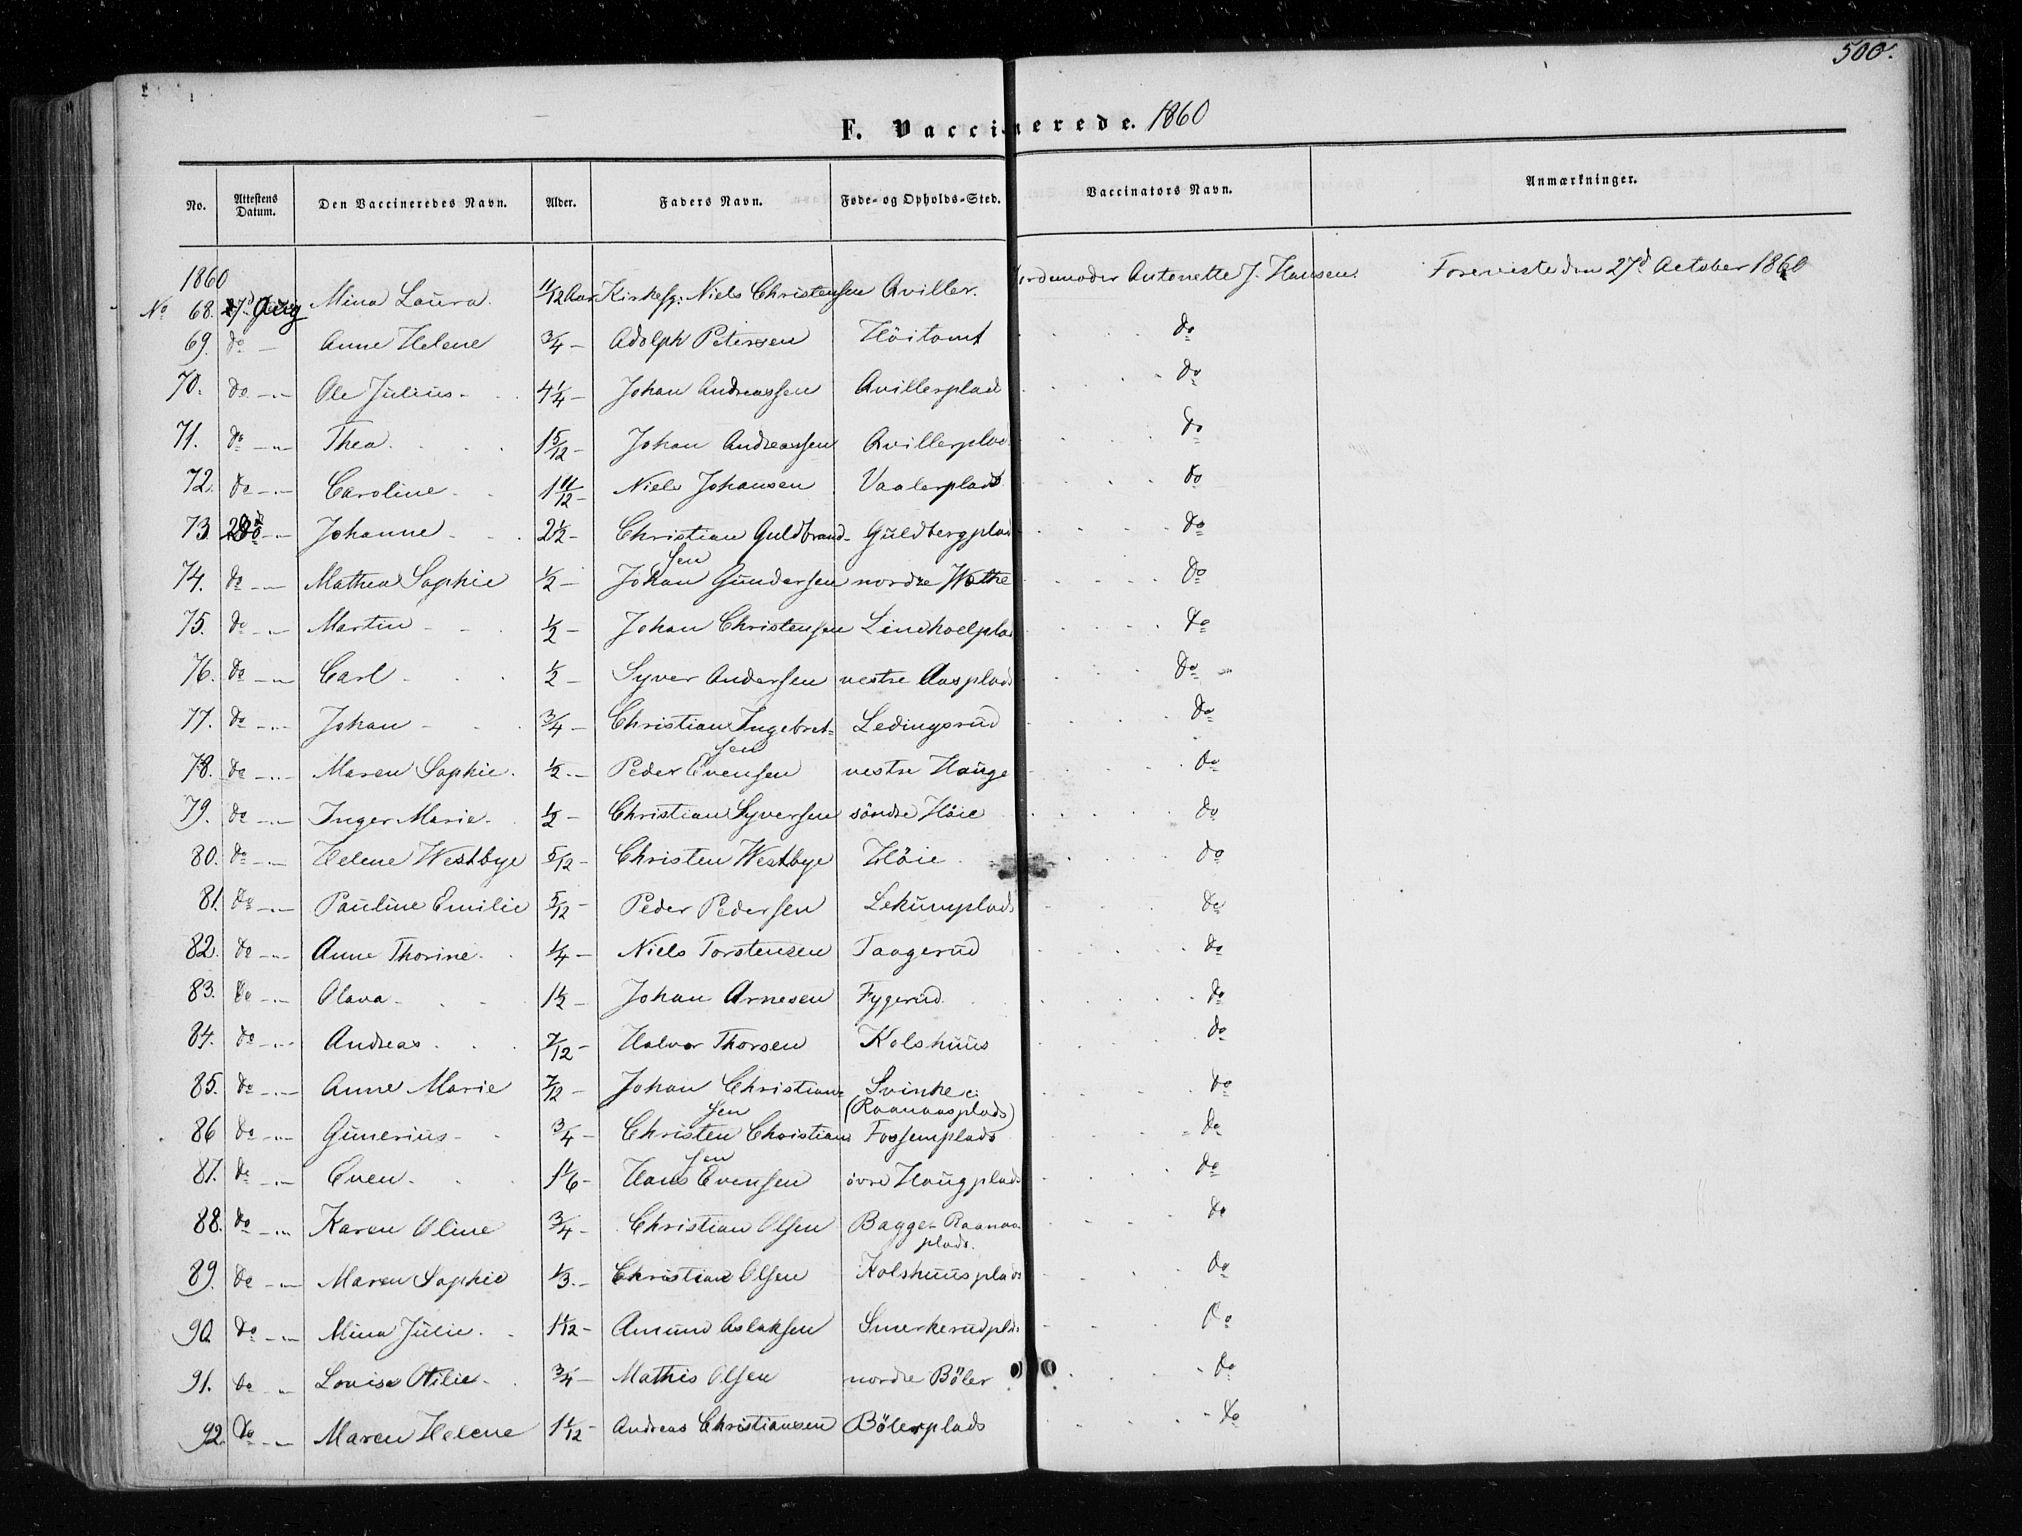 500.
F. Vaccinerede. 1860
No. Attestens Datum. Den Vaccineredes Navn. Alder. Faders Navn. Føde- og Opholds-Sted. Vaccinators Navn. Anmærkninger.
1860
No 68. 27d Aug Mina Laura. 11/12 Aar Kirkesg: Niels Christensen Qviller. Jordemoder Antonette J. Hansen. Foreviste den 27d October 1860
69. do — Anne Helene 3/4 — Adolph Petersen Höitomt do
70. do — Ole Julius 4 1/4 — Johan Andreassen Qvillerplad do
71. do — Thea. 1 5/12 — Johan Andreassen Qvillerplad do
72. do — Caroline 1 11/12 — Niels Johansen Vaalerplads do
73. 28d — Johanne 2 1/2 — Christian Guldbrand- Guldbergplad do
sen
74. do — Mathea Sophie 1/2 — Johan Gundersen nordre Wethe do
75. do — Martin 1/2 — Johan Christensen Lindhoelplad do
76. do — Carl 1/2 — Syver Andersen vestre Aasplads do
77. do — Johan 3/4 — Christian Ingebret- Ledingsrud do
sen
78. do — Maren Sophie. 1/2 — Peder Evensen vestre Hauge do
79. do — Inger Marie. 1/2 — Christian Syversen söndre Höie do
80. do — Helene Westbye 5/12 — Christen Westbye Höie do
81. do — Pauline Emilie 5/12 — Peder Pedersen Lekumplads do
82. do — Anne Thorine. 1/4 — Niels Torstensen Taagerud do
83. do — Olava 1 1/2 — Johan Arnesen Fygerud do
84. do — Andreas 7/12 — Halvor Thorsen Kolshuus do
85. do — Anne Marie 7/12 — Johan Christian- Svinke c:
sen (Raanaasplads) do
86 do — Gunerius 3/4 — Christen Christians Fossumplads do
sen
87. do — Even 1 1/6 — Hans Evensen övre Haugplads do
88. do — Karen Oline 3/4 — Christian Olsen Bagge- Raanaa do
plads.
89. do — Maren Sophie 1/3. — Christian Olsen Kolshuusplads do
90. do — Mina Julie. 1 1/12 — Amund Aslaksen Smerkerudplds do
91. do — Lovise Otilie 3/4 — Mathis Olsen nordre Böler do
92. do — Maren Helene 1 1/12 — Andreas Christiansen Bölerplads do